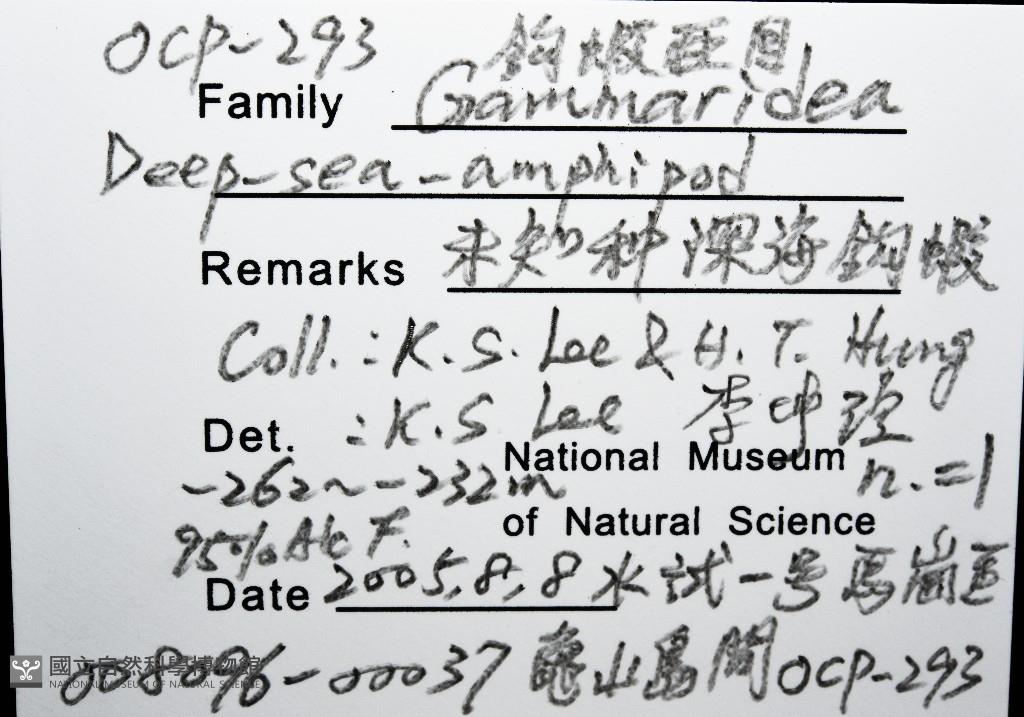 OCP-293 鈎蝦亞目
Family Gammaridea
Deep-sea-amphipod
Remarks 未知种深海鈎蝦
Coll.:K.S. Lee & H.T. Hung
Det. :K.S Lee 李坤瑄
National Museum
-262~-232m n.=1
of Natural Science
95% Alc F.
Date 2005,8,8 水試一号 馬崗至
008496-00037 龜山島間 OCP-293
國立自然科學博物館
NATIONAL MUSEUM OF NATURAL SCIENCE